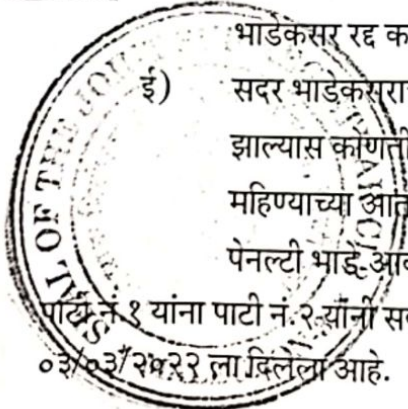 भाडेकसर रद्द क
ई) सदर भाडेकसरा
झाल्यास कोणती
महिण्याच्या आत
पेनल्टी भाडे आ
पार्टी नं १ यांना पार्टी नं. २ यांनी स
०३/०३/२०२२ ला दिलेला आहे.
SEAL OF THE JO